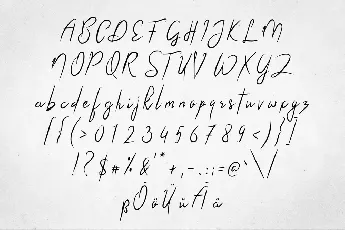 ABCDEFGHIJKLM
NOPQRSTUVWXYZ
abcdefghijklmnopqrstuvwxyz
[{(>0123456789<)}]
!?$#%&"*+,-.:;=@`\/
βÖöÜüÄä